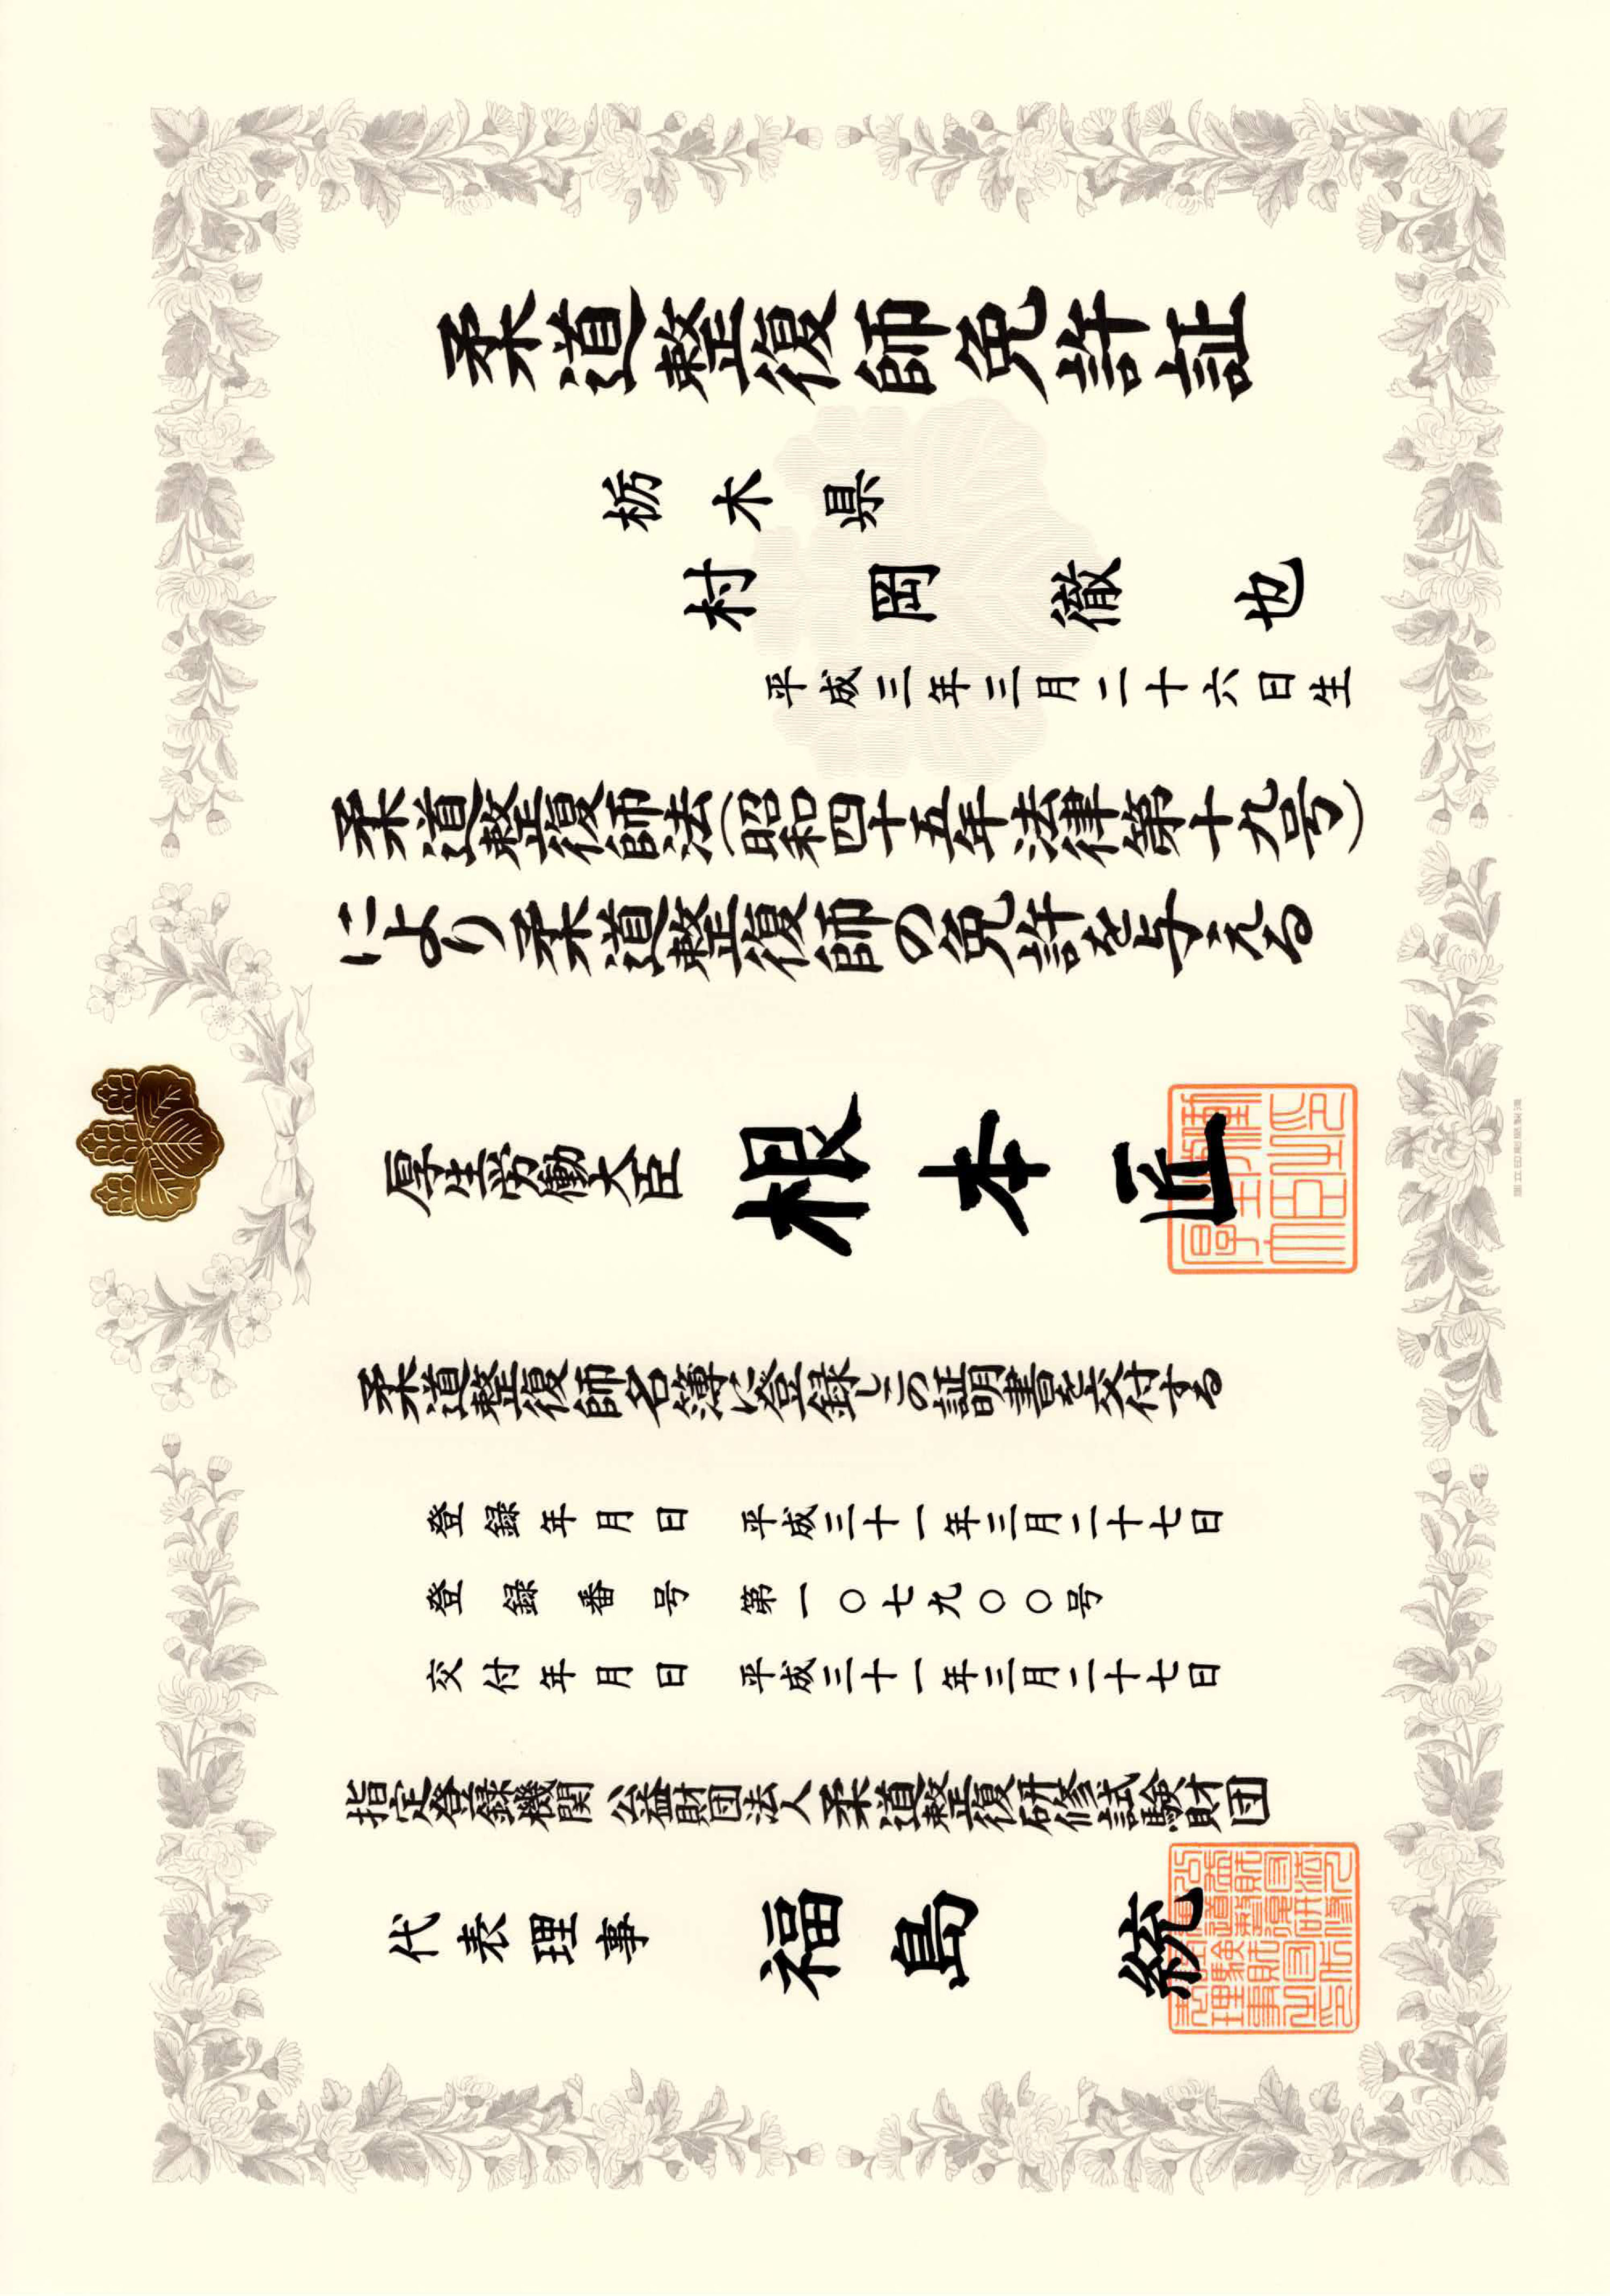 柔道整復師免許証
栃木県
村岡徹也
平成三年三月二十六日生
柔道整復師法(昭和四十五年法律第十九号)
により柔道整復師の免許を与える
厚生労働大臣 根本匠
柔道整復師名簿に登録しこの証明書を交付する
登録年月日 平成三十一年三月二十七日
登録番号 第一〇七九〇〇号
交付年月日 平成三十一年三月二十七日
指定登録機関 公益財団法人柔道整復研修試験財団
代表理事 福島統
国立印刷局製造